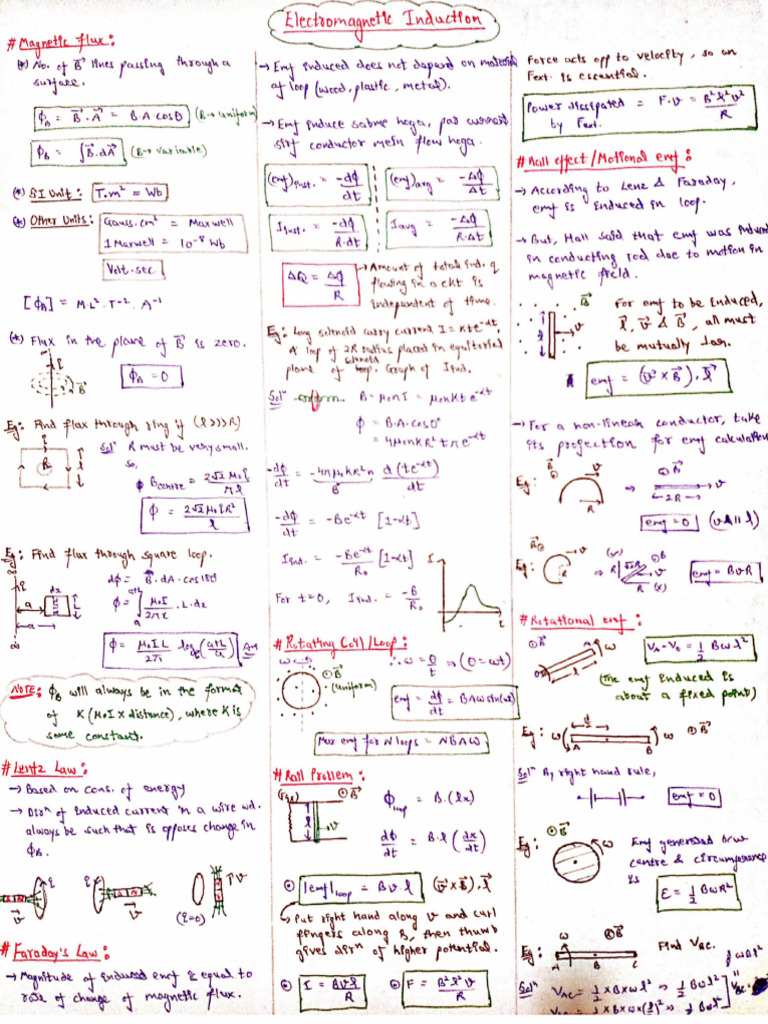 Electromagnetic Induction
# Magnetic flux:
(*) No. of B⃗ lines passing through a
surface.
Φ_B = B⃗.A⃗ = B.A.cosθ (B → uniform)
Φ_B = ∫B⃗.dA⃗ (B → variable)
(*) SI Unit: T.m² = Wb
(*) Other Units: Gauss.cm² = Maxwell
1 Maxwell = 10⁻⁸ Wb
Volt.sec
[Φ_B] = M.L².T⁻².A⁻¹
(*) Flux in the plane of B⃗ is zero.
Φ_B = 0
B⃗
Eg: Find flux through ring if (l>>>R)
Solⁿ R must be very small.
so,
B_centre = 2√2 μ₀i / πl
Φ = 2√2 μ₀iR² / l
R
l
Eg: Find flux through square loop.
dΦ = B⃗.dA.cos180
Φ = ∫ₐ^(a+L) μ₀I/2πx . L.dx
Φ = μ₀IL/2π logₑ((a+L)/a) Ans
dx
a
x
L
NOTE: Φ_B will always be in the format
of K(μ₀I × distance), where K is
some constant.
# Lentz Law:
→ Based on cons. of energy
→ Dirⁿ of induced current in a wire wd.
always be such that is opposes change in
Φ_B.
v⃗
v⃗
(i=0)
↑v⃗
# Faraday's Law:
→ Magnitude of induced emf is equal to
rate of change of magnetic flux.
→ Emf induced does not depend on material
of loop (wood, plastic, metal).
→ Emf induce sabme hoga, par current
sirf conductor mein flow hoga.
(emf)inst. = -dΦ/dt
(emf)avg = -ΔΦ/Δt
Iinst. = -dΦ/R.dt
Iavg = -ΔΦ/R.Δt
ΔQ = ΔΦ/R → Amount of total ind. q
flowing in a ckt is
independent of time.
Eg: Long solenoid carry current I = kte^-αt.
A loop of 2R radius placed in equitorial
plane of solenoid. Graph of Iind.
Solⁿ B = μ₀nI = μ₀nKte^-αt
Φ = B.A.cos0°
= 4μ₀nkR²tπe^-αt
-dΦ/dt = -4πμ₀kR²n d(te^-αt)/dt
B
-dΦ/dt = -Be^-αt [1-αt]
Iind. = -Be^-αt/R₀ [1-αt]
For t=0, Iind. = -B/R₀
I
t
# Rotating Coil/Loop:
ω
⊙B⃗
(uniform)
∴ ω = θ/t ⇒ (θ=ωt)
emf = dΦ/dt = BAωsin(ωt)
Max emf for N loops = NBAω
# Rail Problem:
⊙B⃗
l
v
x
Φ_loop = B.(lx)
dΦ/dt = B.l(dx/dt)
|emf|loop = Bvl (v⃗×B⃗).l⃗
→ Put right hand along v and curl
fingers along B, then thumb
gives dirⁿ of higher potential.
I = Bvl/R
F = B²l²v/R
Force acts opp to velocity, so an
Fext. is essential.
Power dissipated by Fext. = F.v = B²l²v²/R
# Hall effect/Motional emf:
→ According to Lenz & Faraday,
emf is induced in loop.
→ But, Hall said that emf was induced
in conducting rod due to motion in
magnetic field.
B⃗
l
v
For emf to be induced,
l⃗, v⃗ & B⃗, all must
be mutually ⊥ar.
emf = (v⃗×B⃗).l⃗
→ For a non-linear conductor, take
its projection for emf calculation
Eg:
B⃗
v
R
⇒ ⊙B⃗
v
←2R→
emf=0 (v & l ∥)
Eg:
B⊙
v
R
⇒ R √2R ⊙B
v
R
emf = BvR
# Rotational emf:
⊙B⃗
A
ω
l
O
V_A-V_O = 1/2 Bωl²
(The emf induced is
about a fixed point)
Eg: ω
A
B
ω
⊙B⃗
Solⁿ By right hand rule,
emf=0
Eg: ⊙B⃗
ω
Emf generated b/w
centre & circumference
is
ε = 1/2 BωR²
Eg: ω
⊗B⃗
A B C
Find V_BC.
Solⁿ V_AC = 1/2×B×ω×l² ⇒ 1/2 Bωl²